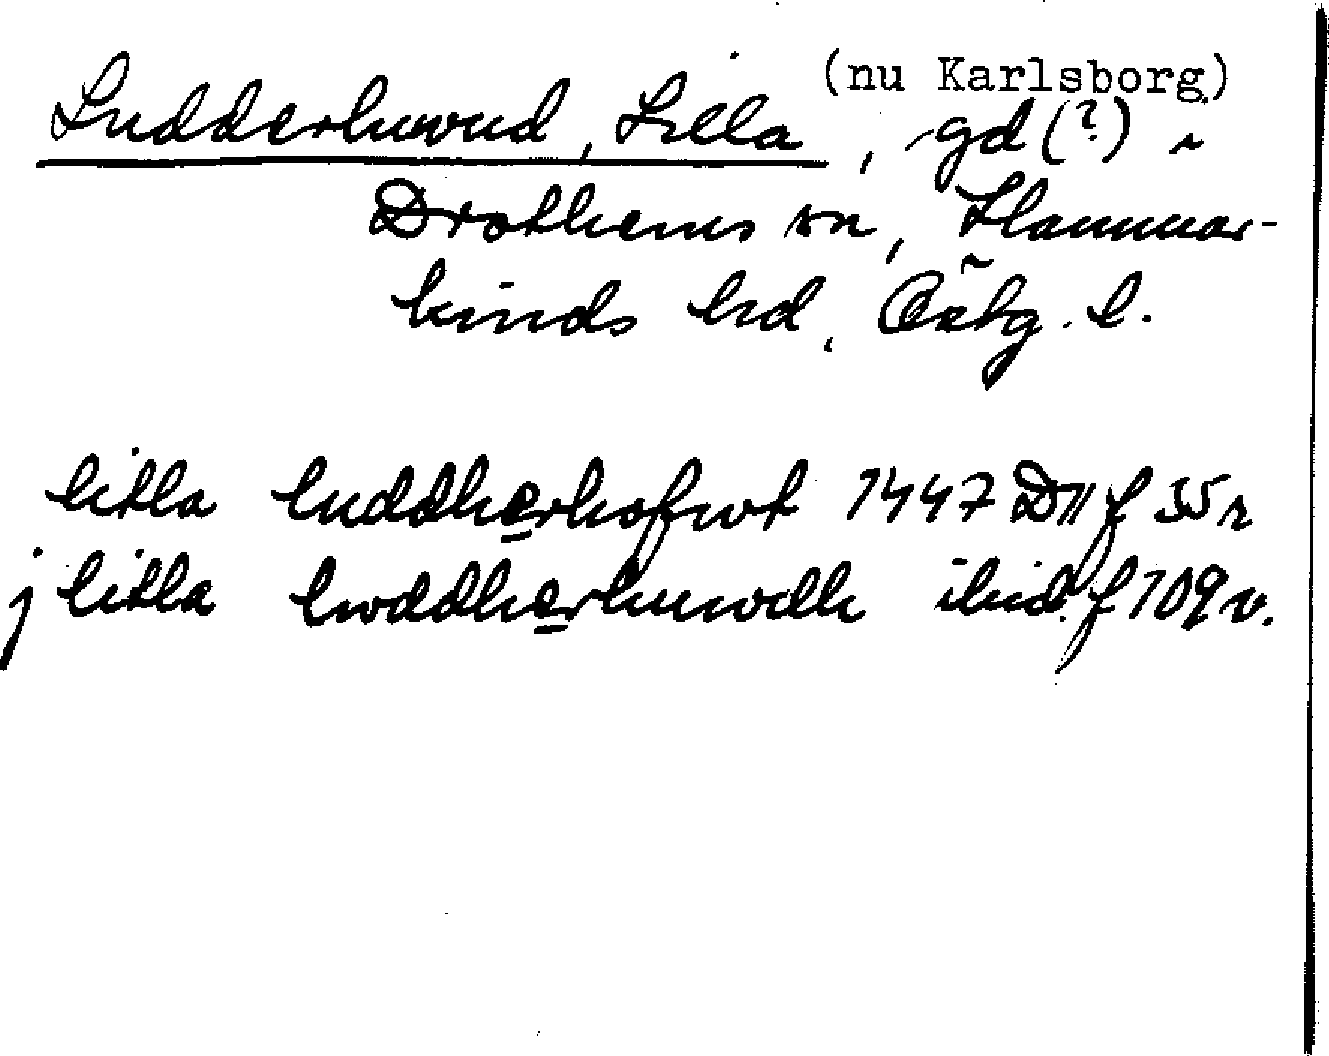 (nu Karlsborg)
Ludderhuvud, Lilla, gd (?) i
Drothems sn, Hammar-
kinds hd, Östg. l.
litla luddherhofwt 1447 D11 f 35 r
j litla lwddherhuwdh ibid. f 109 v.